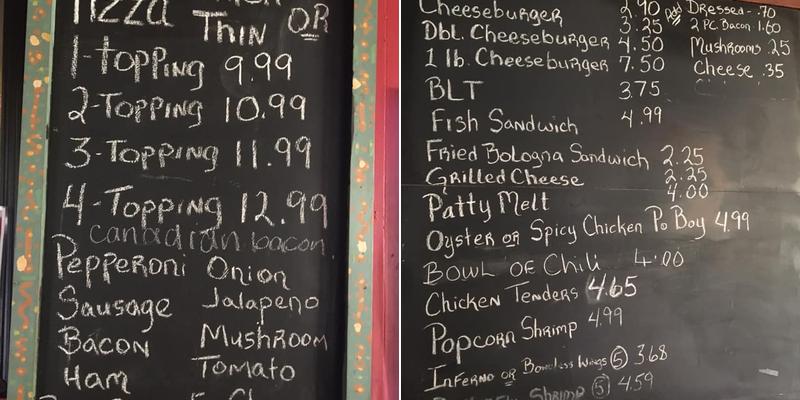 Pizza
Thin or
1-topping 9.99
2-Topping 10.99
3-Topping 11.99
4-Topping 12.99
canadian bacon
Pepperoni Onion
Sausage Jalapeno
Bacon Mushroom
Ham Tomato
Cheeseburger 2.90 Add Dressed-.70
3.25 2 PC. Bacon 1.60
Dbl. Cheeseburger 4.50 Mushrooms .25
1 lb. Cheeseburger 7.50 Cheese .35
BLT 3.75
Fish Sandwich 4.99
Fried Bologna Sandwich 2.25
Grilled Cheese 2.25
Patty Melt 4.00
Oyster or Spicy Chicken Po Boy 4.99
Bowl of Chili 4.00
Chicken Tenders 4.65
Popcorn Shrimp 4.99
Inferno or Boneless Wings (5) 3.68
Shrimp (5) 4.59